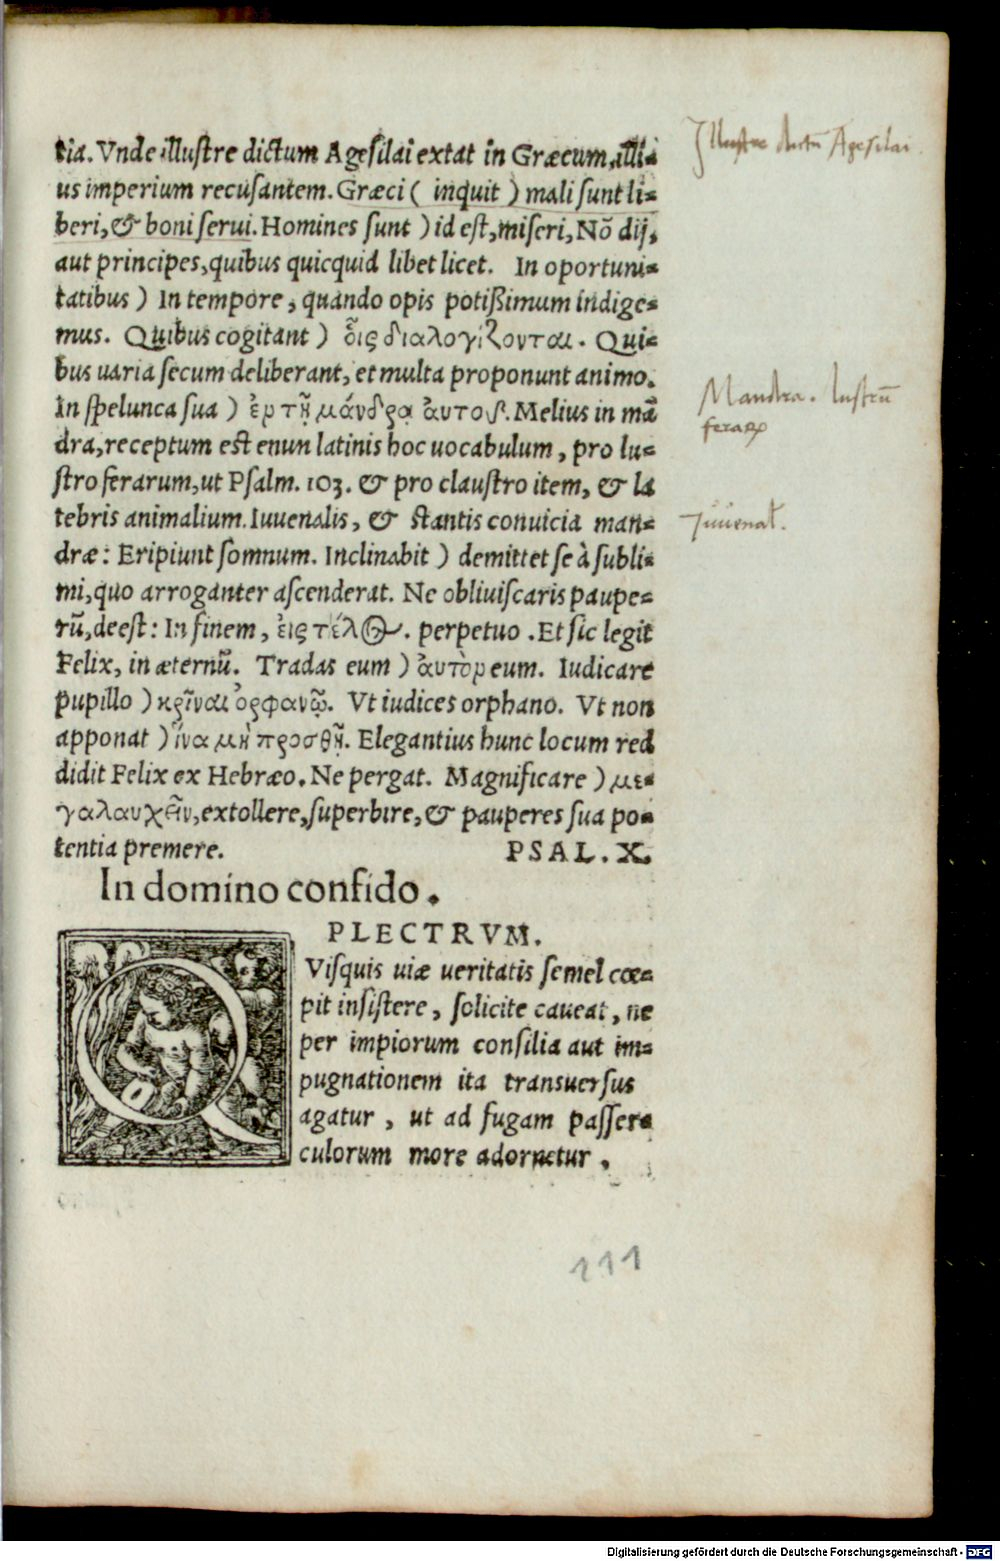 tia. Vnde illustre dictum Agesilai extat in Græcum, illi-
us imperium recusantem. Græci ( inquit ) mali sunt li-
beri, & boni serui. Homines sunt ) id est, miseri, Nõ dij,
aut principes, quibus quicquid libet licet. In oportuni-
tatibus ) In tempore, quando opis potißimum indige-
mus. Quibus cogitant ) οἷς διαλογίζονται. Qui-
bus uaria secum deliberant, et multa proponunt animo.
In spelunca sua ) ἐν τῇ μάνδρᾳ ἀυτοῦ. Melius in mã
dra, receptum est enun latinis hoc uocabulum, pro lu-
stro ferarum, ut Psalm. 103. & pro claustro item, & la
tebris animalium. Iuuenalis, & stantis conuicia man-
dræ: Eripiunt somnum. Inclinabit ) demittet se à subli-
mi, quo arroganter ascenderat. Ne obliuiscaris paupe-
rũ, deest: In finem, ἐις τέλος. perpetuo. Et sic legit
Felix, in æternũ. Tradas eum ) ἀυτὸν eum. Iudicare
pupillo ) κρῖναι ὀρφανῷ. Vt iudices orphano. Vt non
apponat ) ἵνα μὴ προσθῇ. Elegantius hunc locum red
didit Felix ex Hebræo. Ne pergat. Magnificare ) με-
γαλαυχεῖν, extollere, superbire, & pauperes sua po-
tentia premere. PSAL. X.
In domino confido.
PLECTRVM.
QVisquis uiæ ueritatis semel cœ-
pit insistere, solicite caueat, ne
per impiorum consilia aut im-
pugnationem ita transuersus
agatur, ut ad fugam passer-
culorum more adornetur.
Illustre dictũ Agesilai
Mandra. lustrũ
feraꝝ
Juuenal.
111
Digitalisierung gefördert durch die Deutsche Forschungsgemeinschaft - DFG